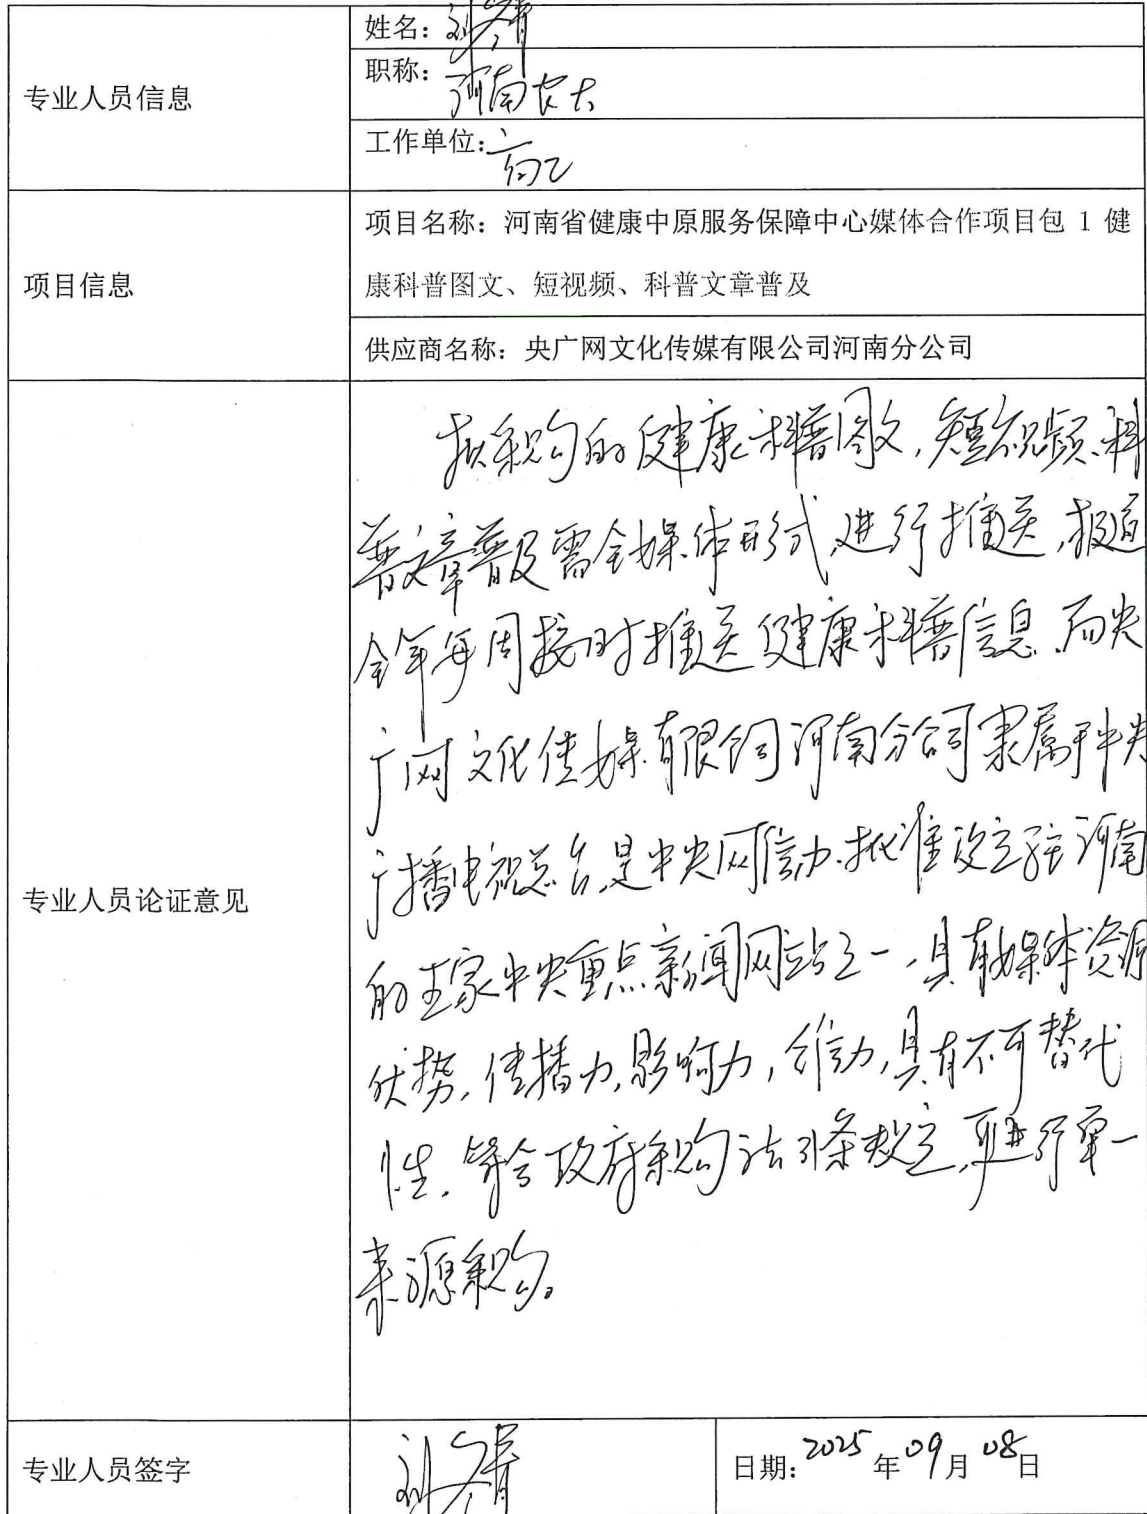 专业人员信息
姓名：刘
职称：河南农大
工作单位：高工
项目信息
项目名称：河南省健康中原服务保障中心媒体合作项目包 1 健
康科普图文、短视频、科普文章普及
供应商名称：央广网文化传媒有限公司河南分公司
专业人员论证意见
拟采购的健康科普图文，短视频、科
普文章普及需全媒体形式进行推送，报道
全年每周按时推送健康科普信息。而央
广网文化传媒有限公司河南分公司隶属于中央
广播电视总台，是中央网信办批准设立驻河南
的 家中央重点新闻网站之一，具有媒体资源
优势，传播力，影响力，公信力，具有不可替代
性，符合政府采购法 条规定，可进行单一
来源采购。
专业人员签字
刘
日期：2025 年 09 月 08 日